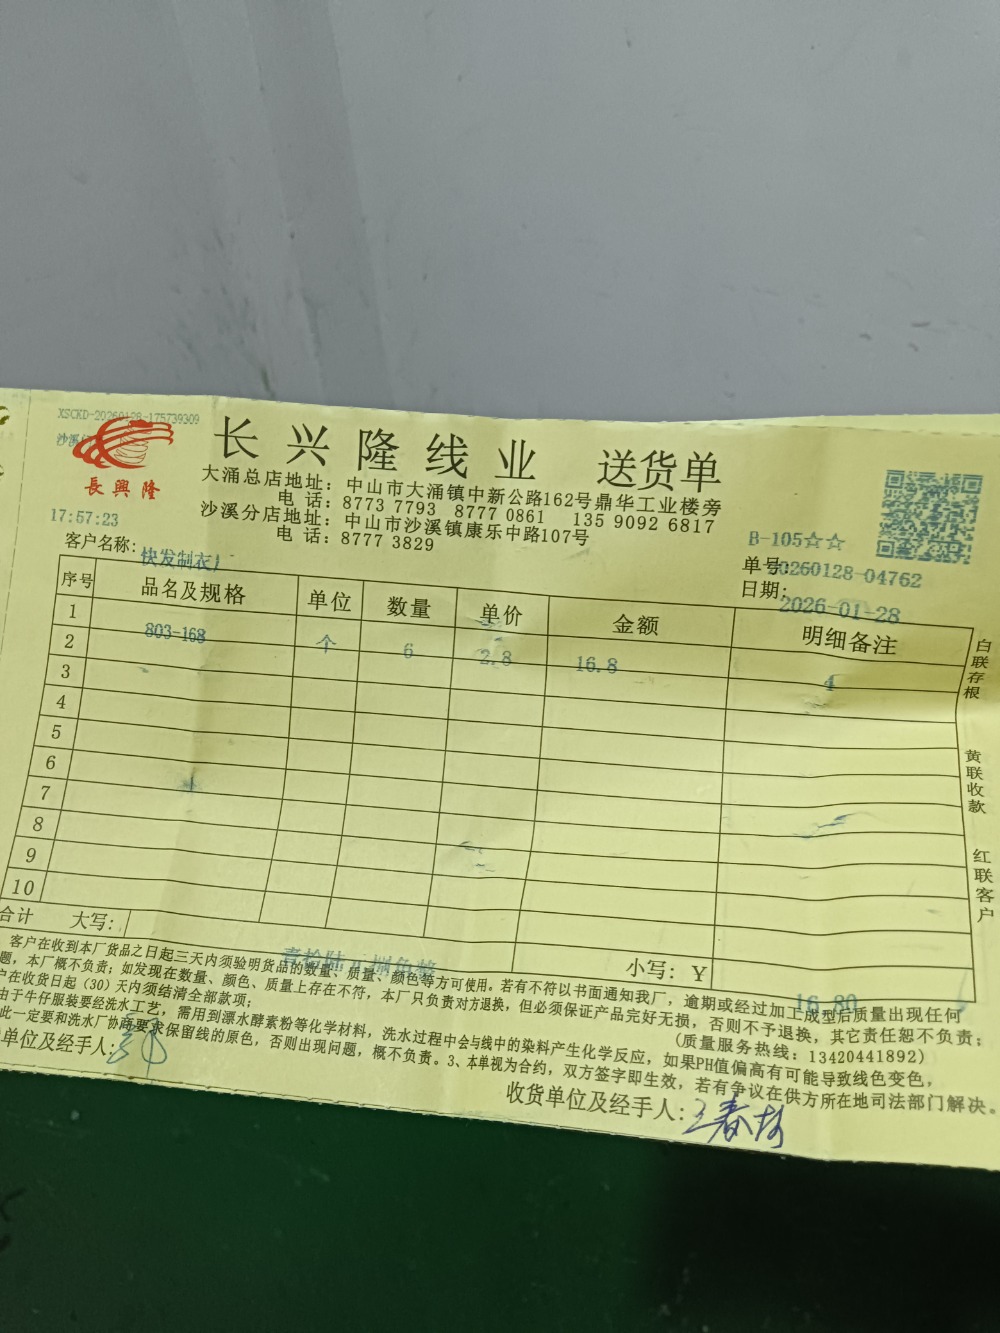 XSCKD-20260128-175739309
沙溪
長興隆
长兴隆线业 送货单
大涌总店地址：中山市大涌镇中新公路162号鼎华工业楼旁
电 话：8773 7793 8777 0861 135 9092 6817
沙溪分店地址：中山市沙溪镇康乐中路107号
电 话：8777 3829
17:57:23
B-105☆☆
客户名称：快发制衣厂
单号：20260128-04762
日期：2026-01-28
序号 品名及规格 单位 数量 单价 金额 明细备注
1 803-168 个 6 2.8 16.8 4
2
3
4
5
6
7
8
9
10
合计 大写：壹拾陆元捌角整 小写：Y 16.80
客户在收到本厂货品之日起三天内须验明货品的数量、质量、颜色等方可使用。若有不符以书面通知我厂，逾期或经过加工成型后质量出现任何
题，本厂概不负责；如发现在数量、颜色、质量上存在不符，本厂只负责对方退换，但必须保证产品完好无损，否则不予退换，其它责任恕不负责；
户在收货日起（30）天内须结清全部款项； (质量服务热线：13420441892)
由于牛仔服装要经洗水工艺，需用到漂水酵素粉等化学材料，洗水过程中会与线中的染料产生化学反应，如果PH值偏高有可能导致线色变色，
此一定要和洗水厂协商要求保留线的原色，否则出现问题，概不负责。3、本单视为合约，双方签字即生效，若有争议在供方所在地司法部门解决。
单位及经手人：
收货单位及经手人：
白联存根
黄联收款
红联客户